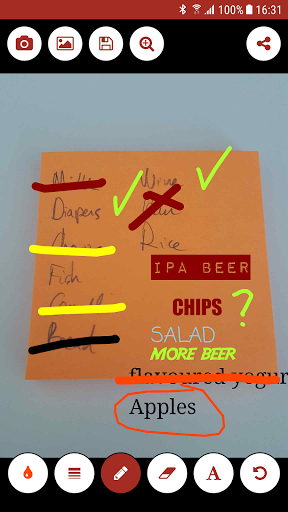 100% 16:31
Milk
Diapers
Fish
Bread
Wine
Rice
IPA BEER
CHIPS ?
SALAD
MORE BEER
flavoured yogur
Apples
A